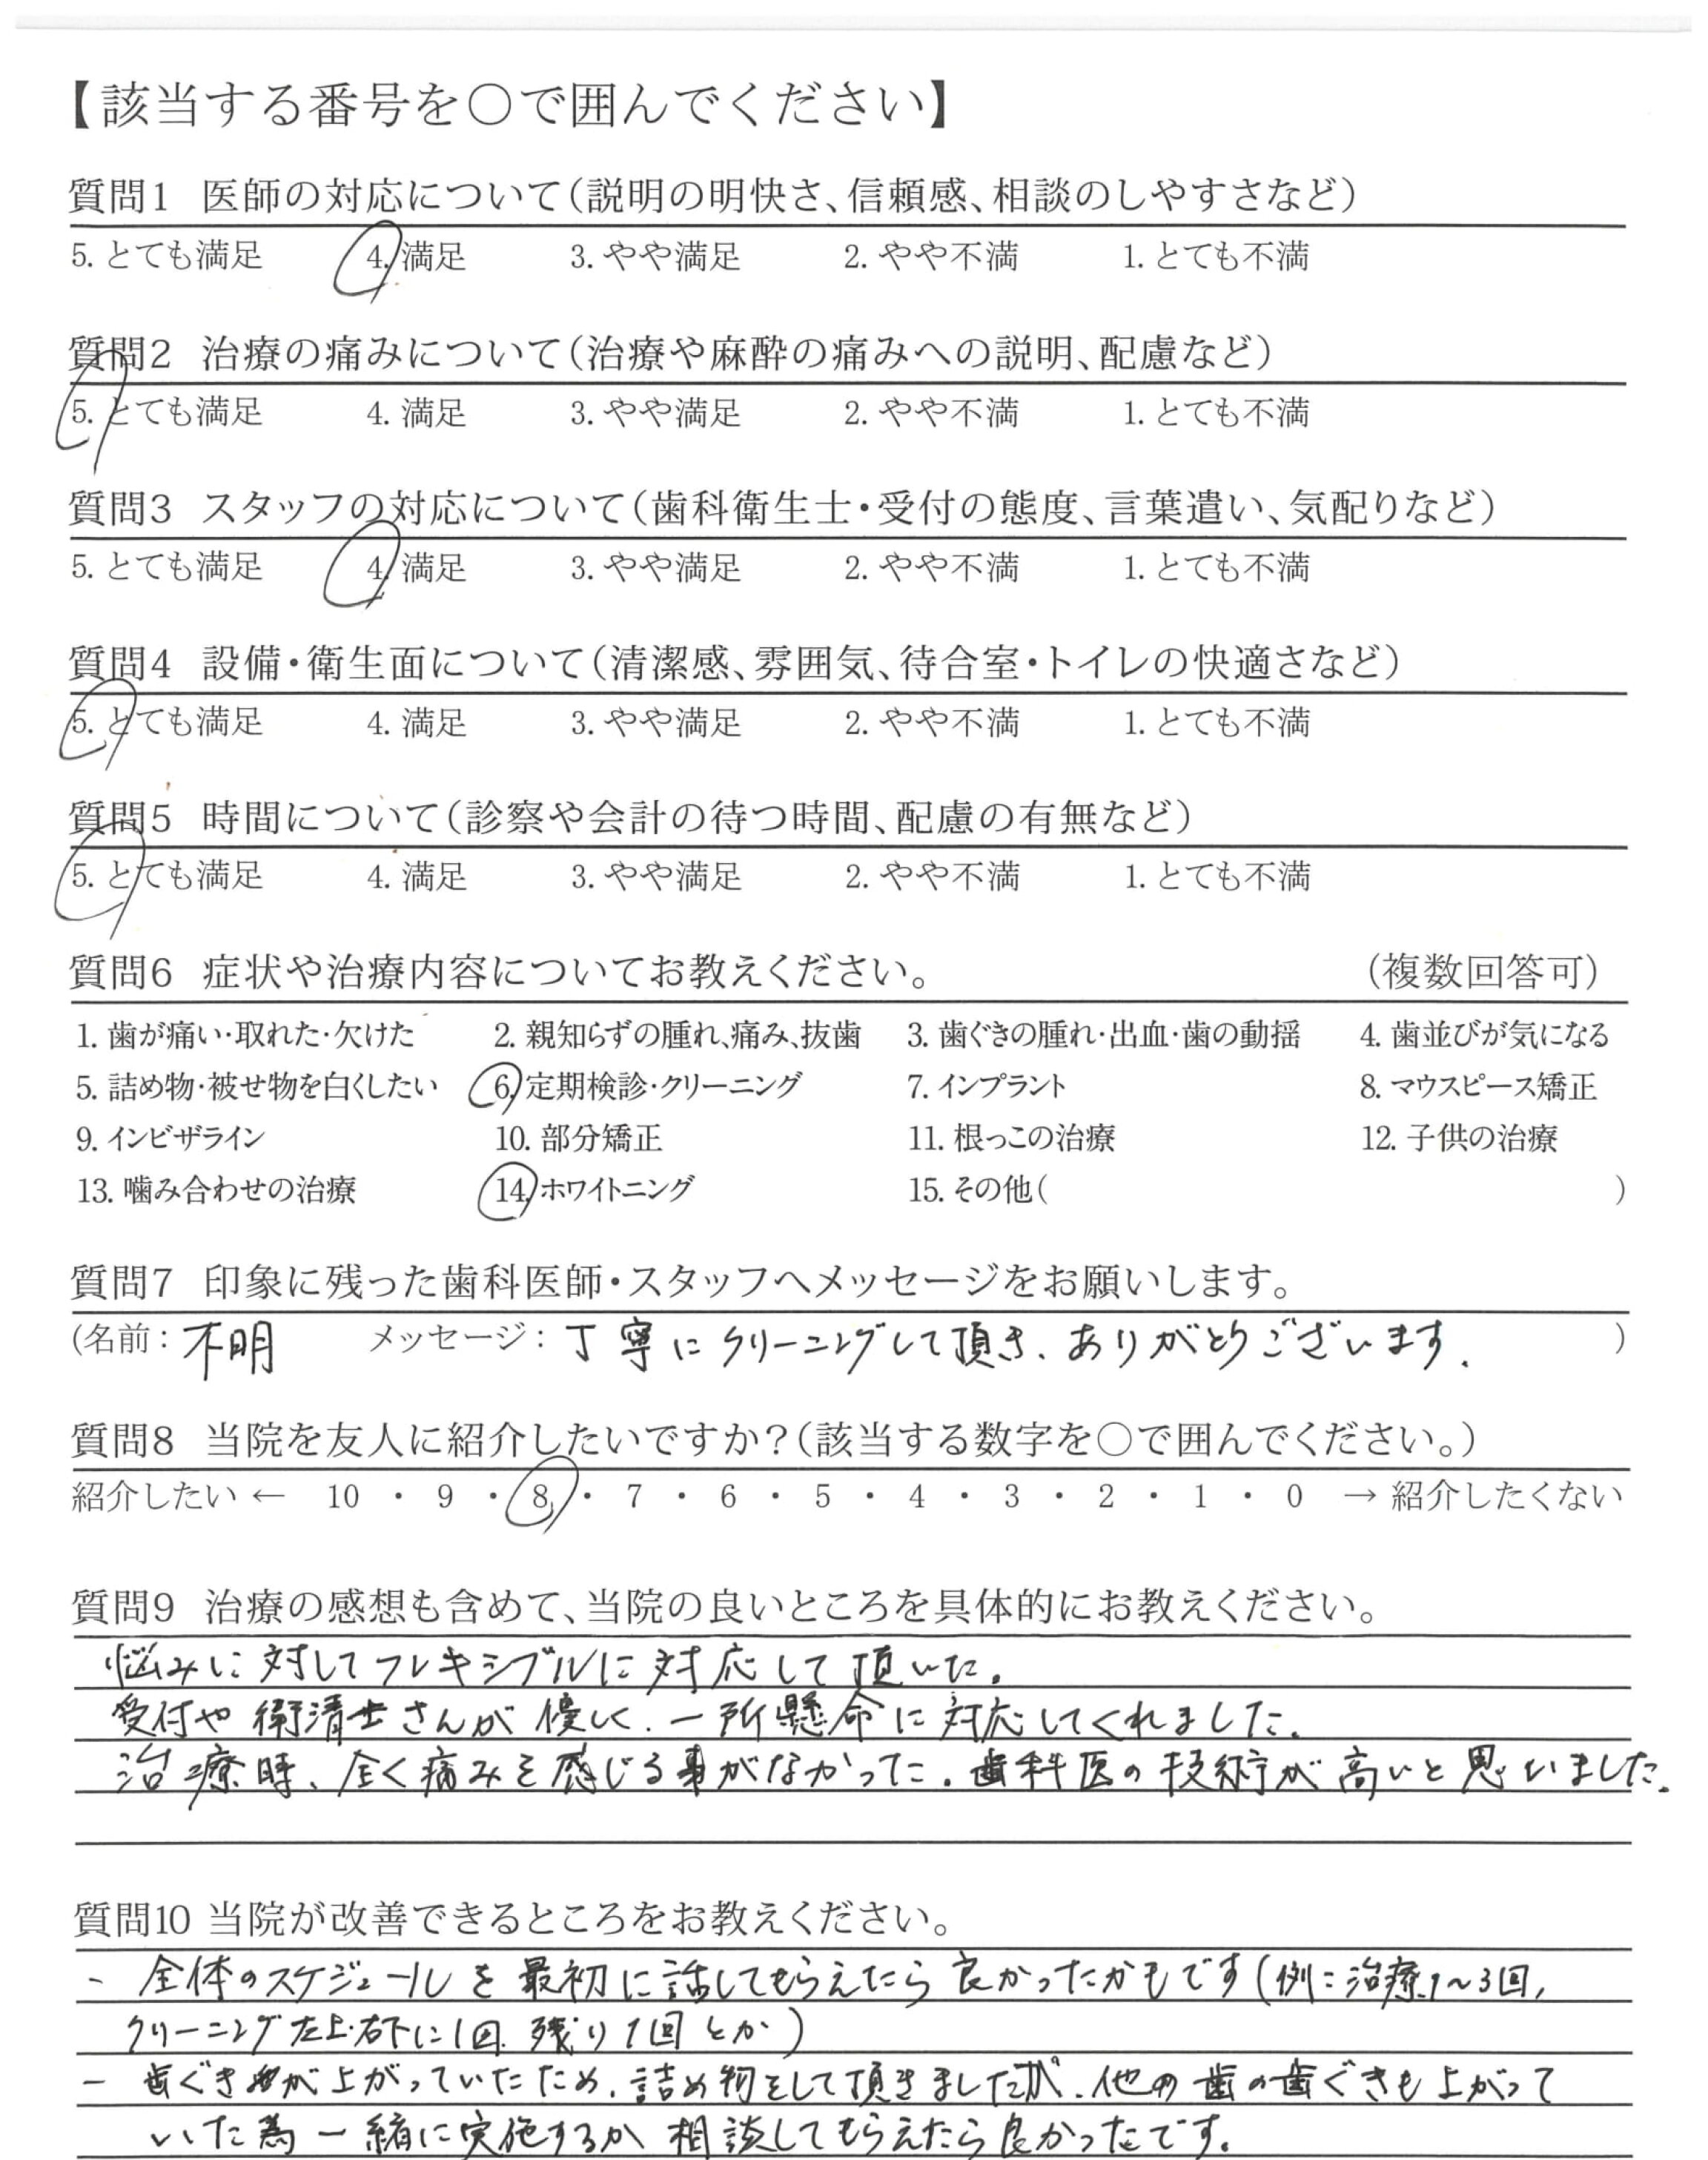 【該当する番号を〇で囲んでください】
質問1 医師の対応について(説明の明快さ、信頼感、相談のしやすさなど)
5. とても満足 4. 満足 3. やや満足 2. やや不満 1. とても不満
質問2 治療の痛みについて(治療や麻酔の痛みへの説明、配慮など)
5. とても満足 4. 満足 3. やや満足 2. やや不満 1. とても不満
質問3 スタッフの対応について(歯科衛生士・受付の態度、言葉遣い、気配りなど)
5. とても満足 4. 満足 3. やや満足 2. やや不満 1. とても不満
質問4 設備・衛生面について(清潔感、雰囲気、待合室・トイレの快適さなど)
5. とても満足 4. 満足 3. やや満足 2. やや不満 1. とても不満
質問5 時間について(診察や会計の待つ時間、配慮の有無など)
5. とても満足 4. 満足 3. やや満足 2. やや不満 1. とても不満
質問6 症状や治療内容についてお教えください。 (複数回答可)
1. 歯が痛い・取れた・欠けた 2. 親知らずの腫れ、痛み、抜歯 3. 歯ぐきの腫れ・出血・歯の動揺 4. 歯並びが気になる
5. 詰め物・被せ物を白くしたい 6. 定期検診・クリーニング 7. インプラント 8. マウスピース矯正
9. インビザライン 10. 部分矯正 11. 根っこの治療 12. 子供の治療
13. 噛み合わせの治療 14. ホワイトニング 15. その他( )
質問7 印象に残った歯科医師・スタッフへメッセージをお願いします。
(名前: 不明 メッセージ: 丁寧にクリーニングして頂き、ありがとうございます. )
質問8 当院を友人に紹介したいですか?(該当する数字を〇で囲んでください。)
紹介したい ← 10 ・ 9 ・ 8 ・ 7 ・ 6 ・ 5 ・ 4 ・ 3 ・ 2 ・ 1 ・ 0 → 紹介したくない
質問9 治療の感想も含めて、当院の良いところを具体的にお教えください。
悩みに対してフレキシブルに対応して頂いた。
受付や衛清士さんが優しく、一所懸命に対応してくれました。
治療時、全く痛みを感じる事がなかった。歯科医の技術が高いと思いました。
質問10 当院が改善できるところをお教えください。
- 全体のスケジュールを最初に話してもらえたら良かったかもです(例:治療1~3回,
クリーニング左上・右下に1回、残り1回とか)
- 歯ぐきが上がっていたため、詰め物をして頂きましたが、他の歯の歯ぐきも上がって
いた為一緒に実施するか相談してもらえたら良かったです。